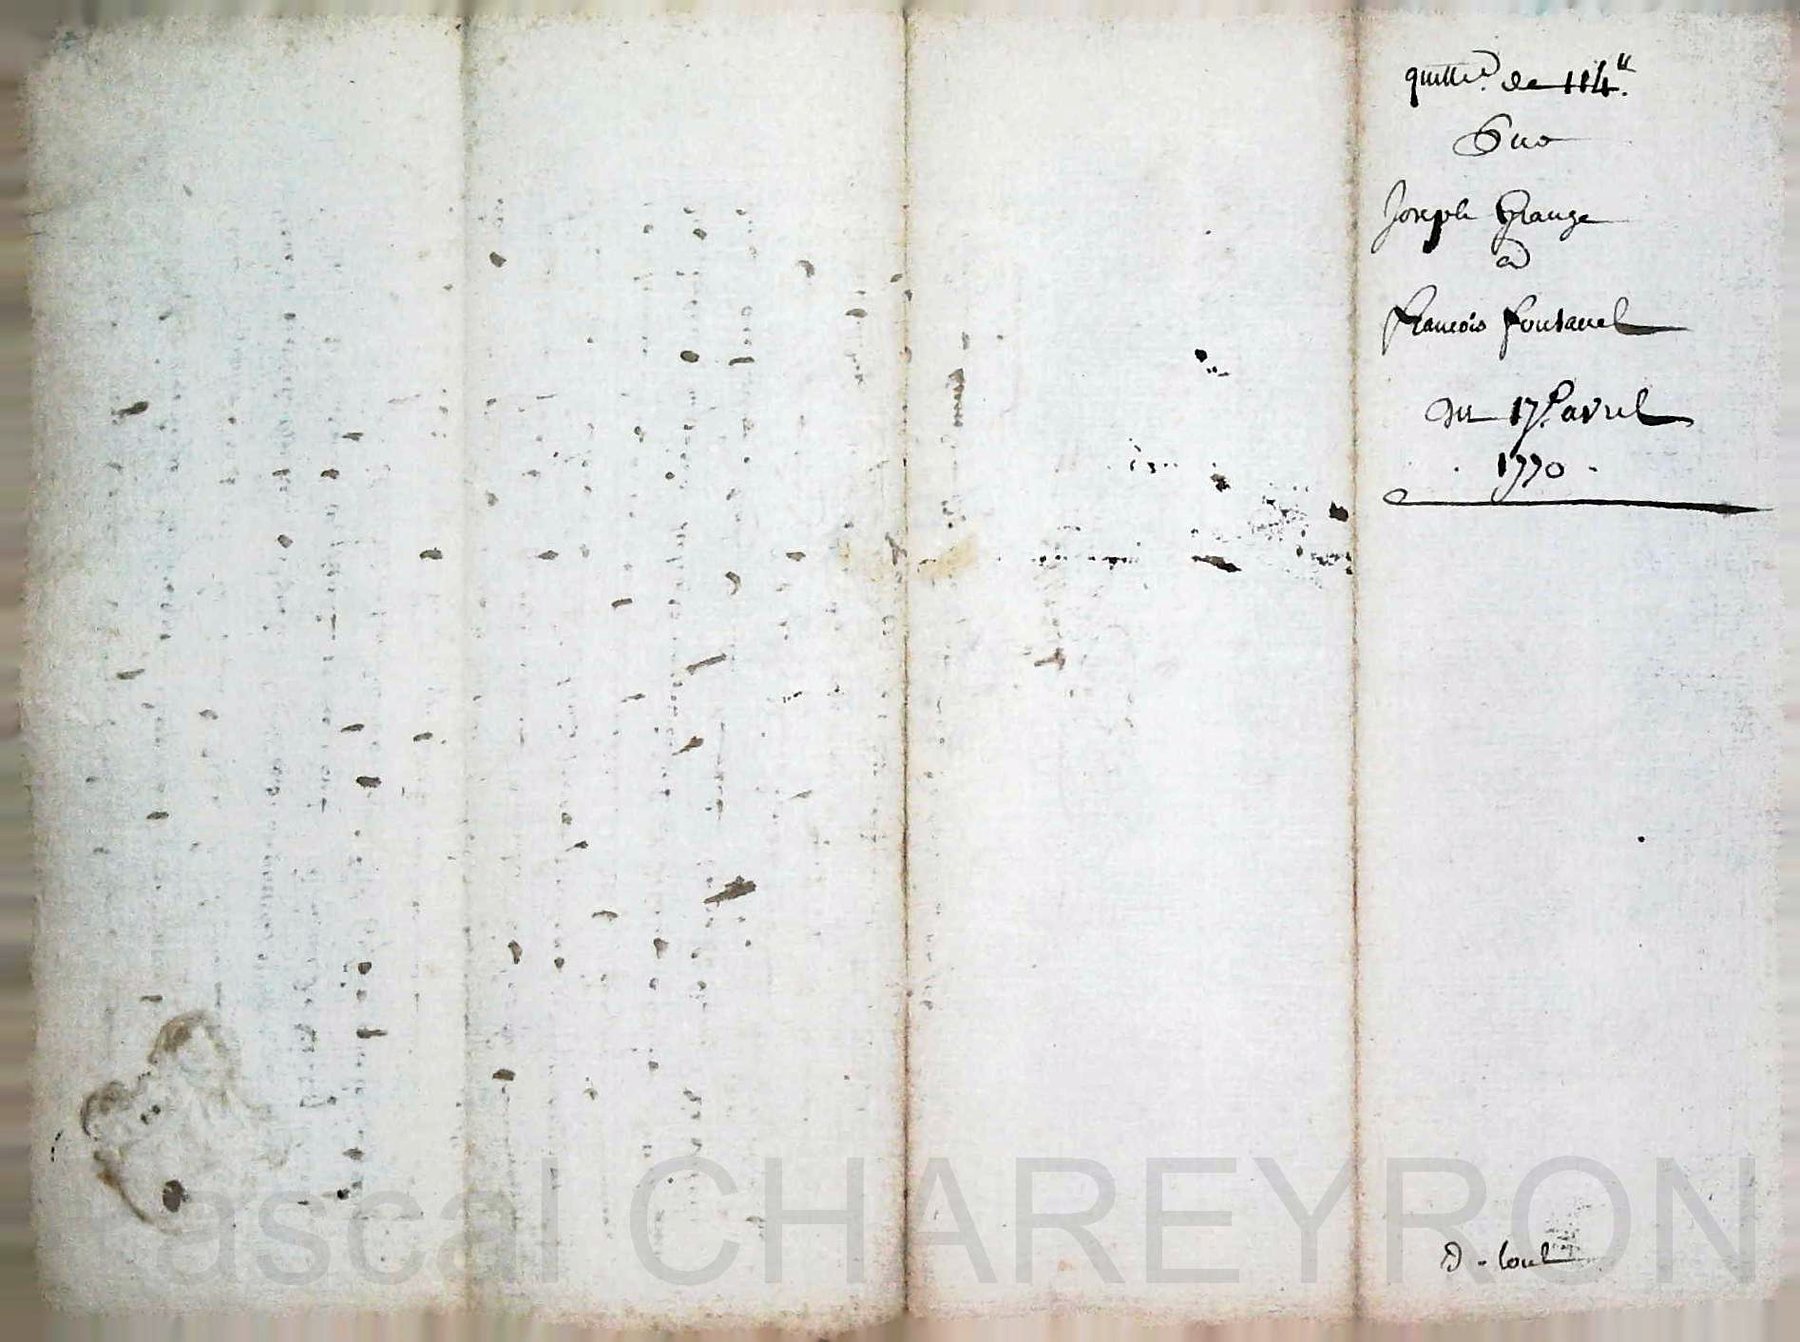 quitt.ce de 114₶.
Pour
Joseph Grange
a
francois fontanel
du 17.e avril
1770.
Pascal CHAREYRON